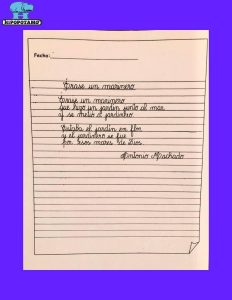 HIPOPOTAMO
Fecha:
Érase un marinero
Érase un marinero
que hizo un jardín junto al mar
y se metió a jardinero.
Estaba el jardín en flor
y el jardinero se fue
por esos mares de Dios.
Antonio Machado